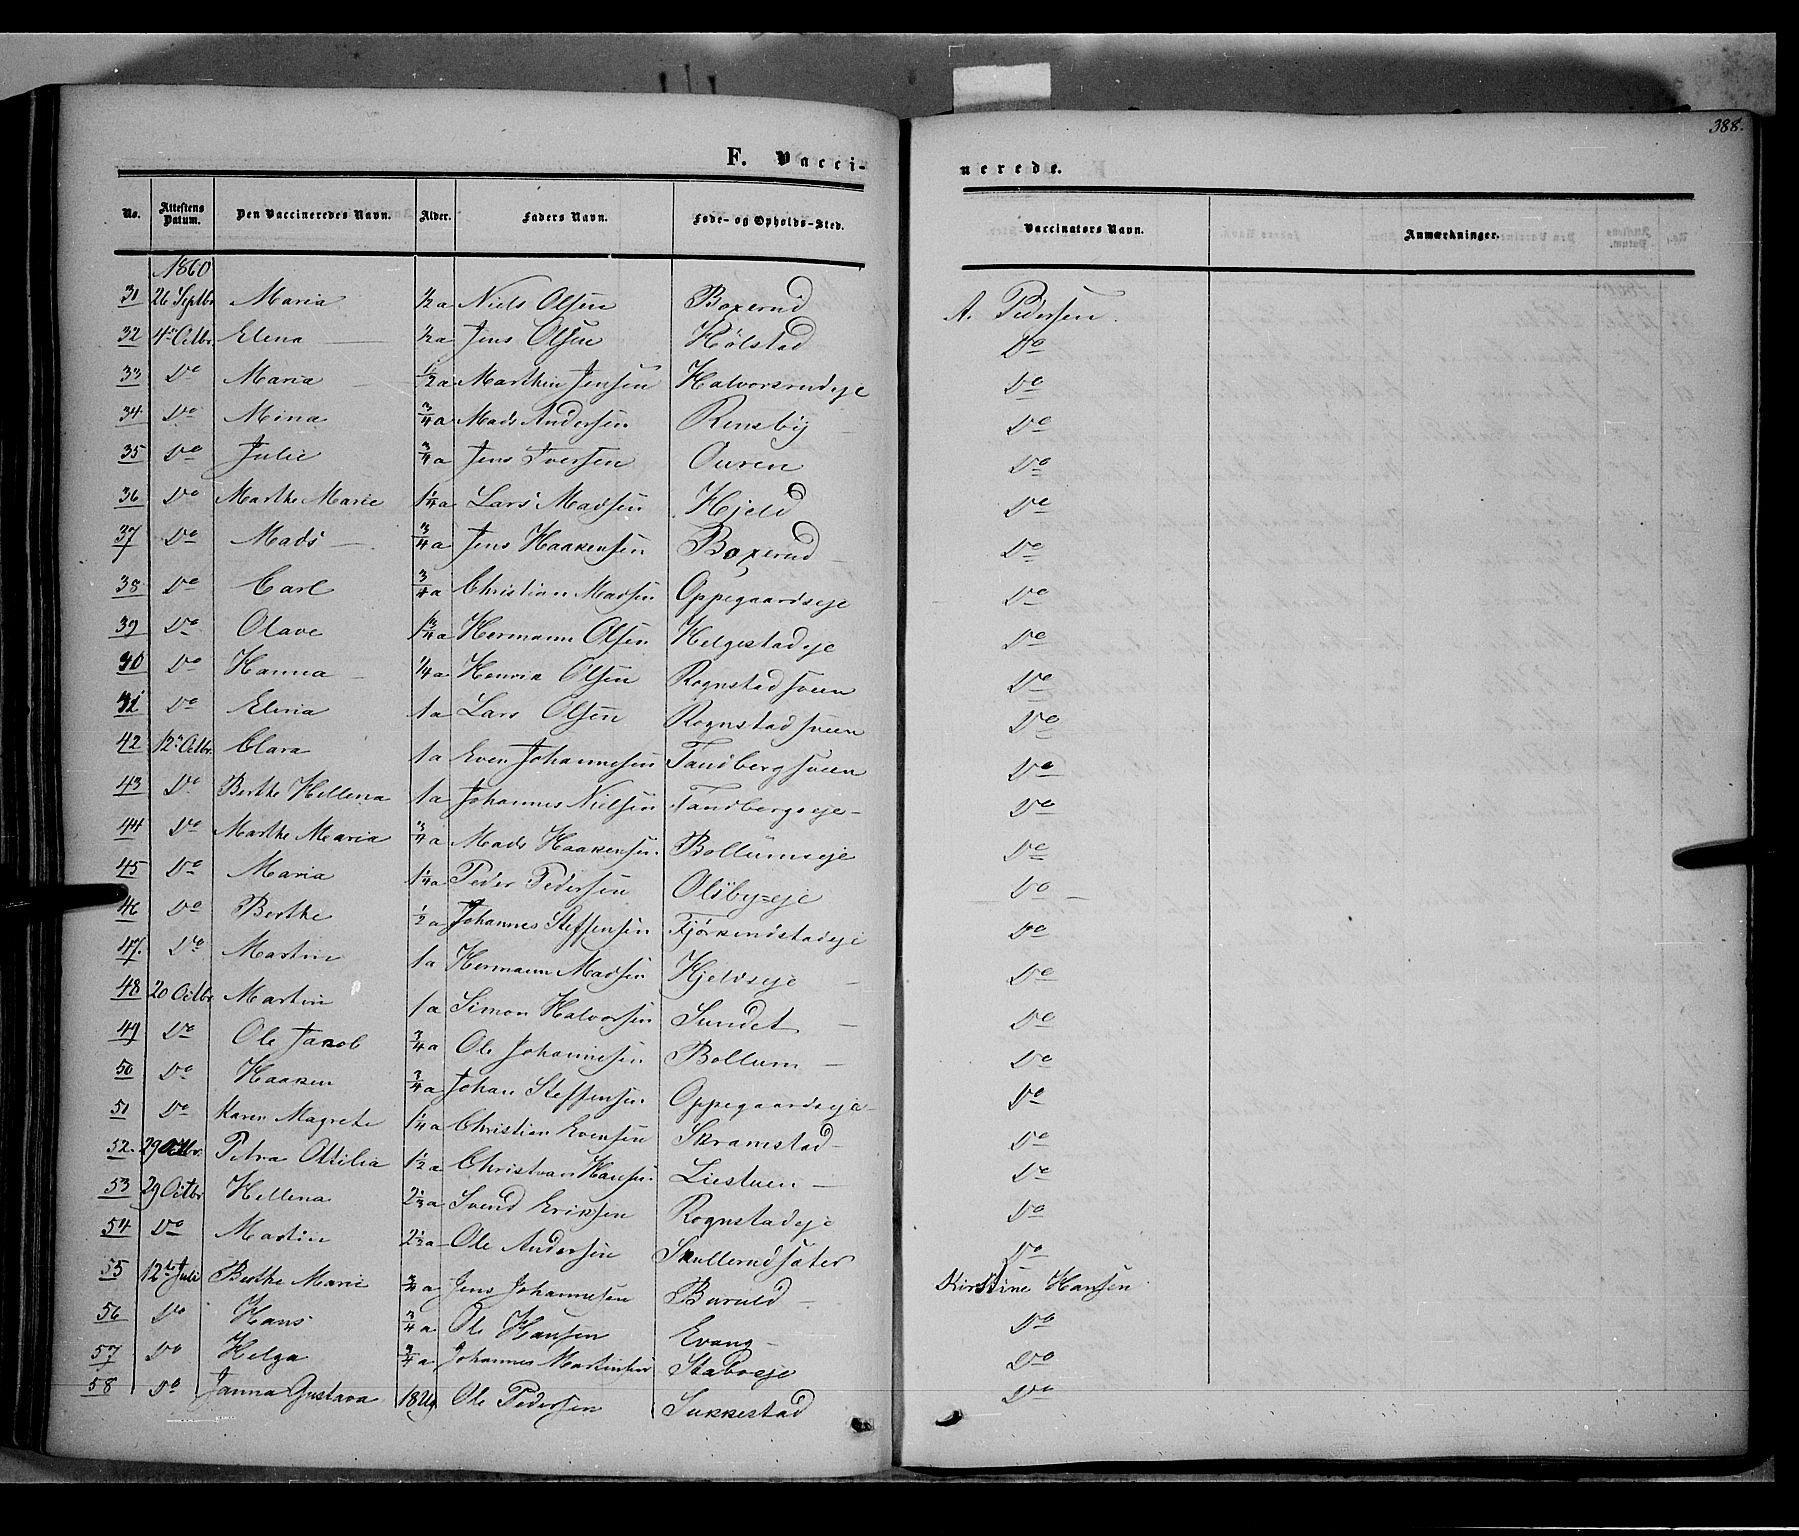 388.
F. Vacci-
nerede.
No. Attestens Datum. Den Vaccineredes Navn. Alder. Faders Navn. Føde- og Opholds-Sted. Vaccinators Navn. Anmærkninger.
1860
31 26 Septbr Maria ½a Niels Olsen Boxerud A. Pedersen.
32 4de Octbr. Elena ½a Jens Olsen Hølstad Do
33 Do Maria ½a Marthin Jensen Halvorsrudeje Do
34 Do Mina ¾a Mads Andersen Rensby Do
35 Do Julie ¾a Jens Iversen Ouren Do
36 Do Marthe Marie 1¼a Lars Madsen Hjeld Do
37 Do Mads ¾a Jens Haakensen Boxerud Do
38 Do Carl ¾a Christian Madsen Oppegaardseje Do
39 Do Olave 1¾a Hermann Olsen Helgestadeje Do
40 Do Hanna ¼a Henrik Olsen Rognstadsveen Do
41 Do Elena 1a Lars Olsen Rognstadsveen Do
42 12te Octbr. Clara 1a Even Johannesen Tandbergsveen Do
43 Do Berthe Hellena 1a Johannes Nielsen Tandbergseje Do
44 Do Marthe Maria ¾a Mads Haakensen Bollumseje Do
45 Do Maria 1¼a Peder Pedersen Olsbyeje Do
46 Do Berthe ½a Johannes Steffensen Fjørkenstadeje Do
47. Do Martin 1a Hermann Madsen Hjeldseje Do
48 20 Octbr Martin 1a Simon Halvorsen Sundet Do
49 Do Ole Jakob ¾a Ole Johannesen Bollum Do
50 Do Haaken ¾a Johan Steffensen Oppegaardseje Do
51 Do Karen Magrete 1¼a Christian Evensen Skramstad Do
52. 29 Octbr. Petra Ottilia 1½a Christian Hansen Liestuen Do
53 29 Octbr Hellena a Svend Eriksen Rognstadeje Do
54 Do Martin a Ole Andersen Skullerudsæter Do
55 12te Juli Berthe Marie ¾a Jens Johannesen Baruld Kirstine Hansen
56 Do Hans ¾a Ole Hansen Evang Do
57 Do Helga ¾a Johannes Martinsen Staboeje Do
58 Do Janna Gustava Ole Pedersen Sukkestad Do